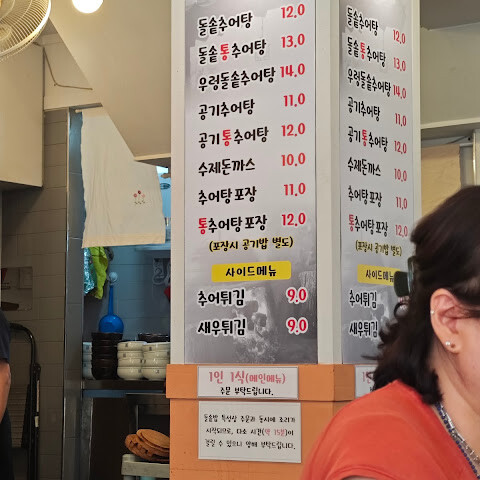 돌솥추어탕 12,0
돌솥통추어탕 13,0
우렁돌솥추어탕 14,0
공기추어탕 11,0
공기통추어탕 12,0
수제돈까스 10,0
추어탕포장 11,0
통추어탕포장 12,0
(포장시 공기밥 별도)
사이드메뉴
추어튀김 9,0
새우튀김 9,0
1인 1식(메인메뉴)
주문 부탁드립니다.
돌솥밥 특성상 주문과 동시에 조리가
시작되므로, 다소 시간(약 15분)이
걸릴 수 있으니 양해 부탁드립니다.
돌솥추어탕 12,0
돌솥통추어탕 13,0
우렁돌솥추어탕 14,0
공기추어탕 11,0
공기통추어탕 12,0
수제돈까스 10,0
추어탕포장 11,0
통추어탕포장 12,0
(포장시 공기밥 별도)
사이드메뉴
추어튀김
새우튀김